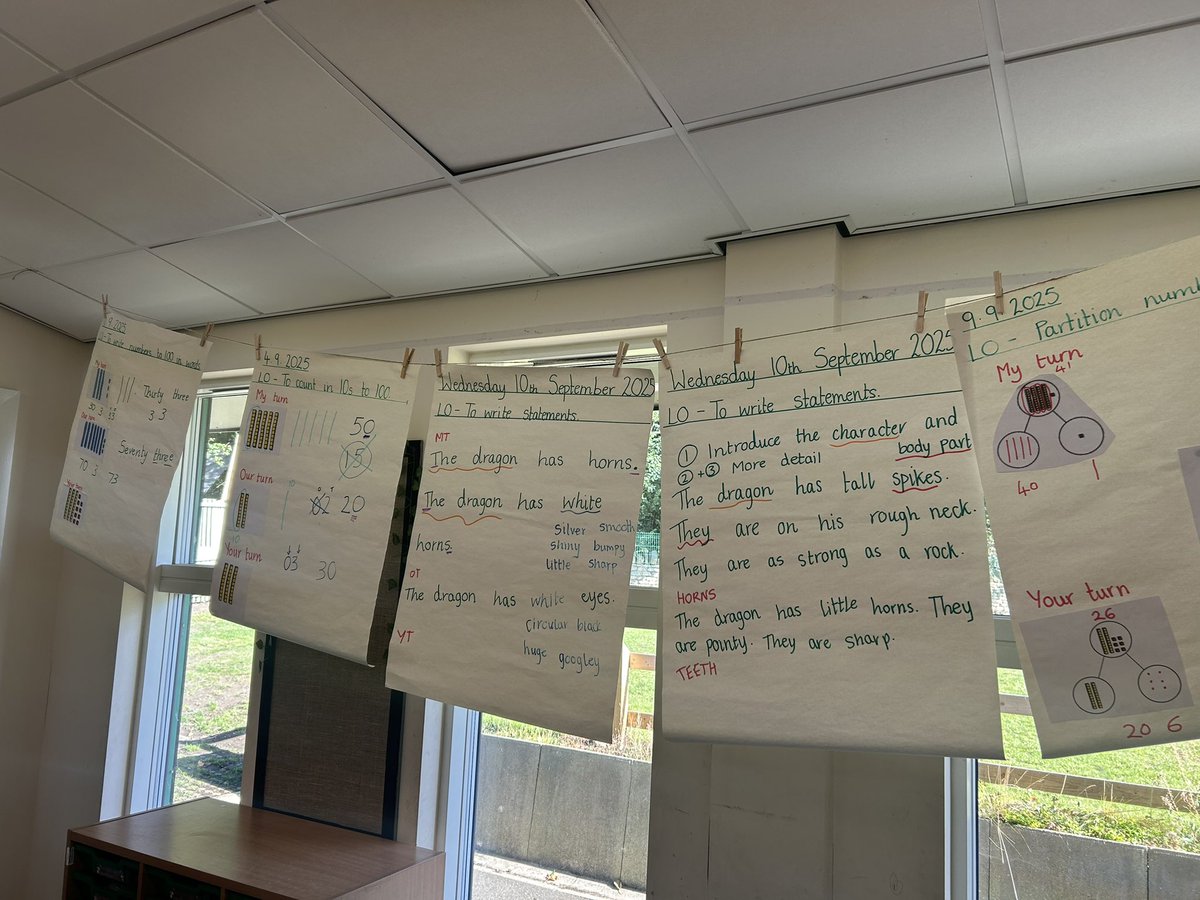 9.2025
LO - To write numbers to 100 in words
My turn
Thirty three
3 3
Our turn
Seventy three
70 3 73
Your turn
4.9.2025
LO - To count in 10s to 100.
My turn
50
15
Our turn
10
02 20
Your turn
03 30
Wednesday 10th September 2025
LO - To write statements.
MT
The dragon has horns.
The dragon has white
horns.
silver smooth
shiny bumpy
little sharp
OT
The dragon has white eyes.
circular black
huge googley
YT
Wednesday 10th September 2025
LO - To write statements.
① Introduce the character and
body part
②+③ More detail
The dragon has tall spikes.
They are on his rough neck.
They are as strong as a rock.
HORNS
The dragon has little horns. They
are pointy. They are sharp.
TEETH
9.9.2025
LO - Partition
My turn
41
40 1
Your turn
26
20 6